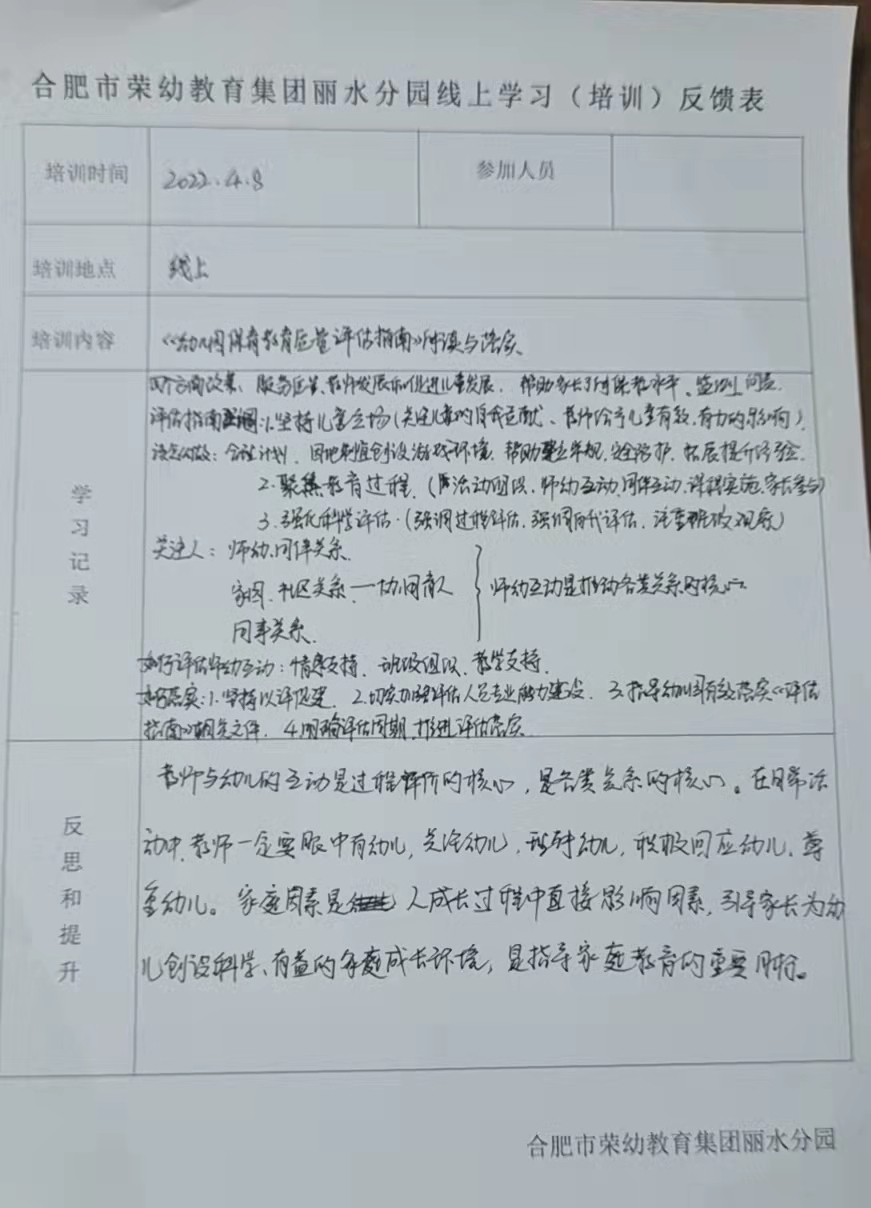 合肥市荣幼教育集团丽水分园线上学习（培训）反馈表
培训时间 2022.4.8 参加人员
培训地点 线上
培训内容 《幼儿园保育教育质量评估指南》解读与落实
四个方面改革、服务质量、教师发展和促进儿童发展。帮助家长了解保教水平、
评估指南强调:1.坚持儿童立场(关注儿童的自我贡献、教师给予儿童有效、有力的影响)
该怎么做:合理计划、因地制宜创设游戏环境、帮助建立常规、安全防护、拓展提升经验.
2.聚焦教育过程.(活动组织、师幼互动、同伴互动、课程实施、家长参与)
3.强化科学评估.(强调过程评估、强调自我评估、注重班级观察)
关注人: 师幼、同伴关系.
家园、社区关系—协同育人 师幼互动是推动各类关系的核心
同事关系.
如何评估师幼互动:情感支持、班级组织、教学支持.
如何落实:1.坚持以评促建 2.切实加强评估人员专业能力建设. 3.指导幼儿园有效落实《评估
指南》相关文件. 4.明确评估周期,推进评估落实.
学习记录
教师与幼儿的互动是过程评价的核心,是各类关系的核心。在日常活
动中,教师一定要眼中有幼儿,关注幼儿,积极回应幼儿、尊
重幼儿。家庭因素是人成长过程中直接影响因素,引导家长为幼
儿创设科学、有益的家庭成长环境,是指导家庭教育的重要目标。
反思和提升
合肥市荣幼教育集团丽水分园